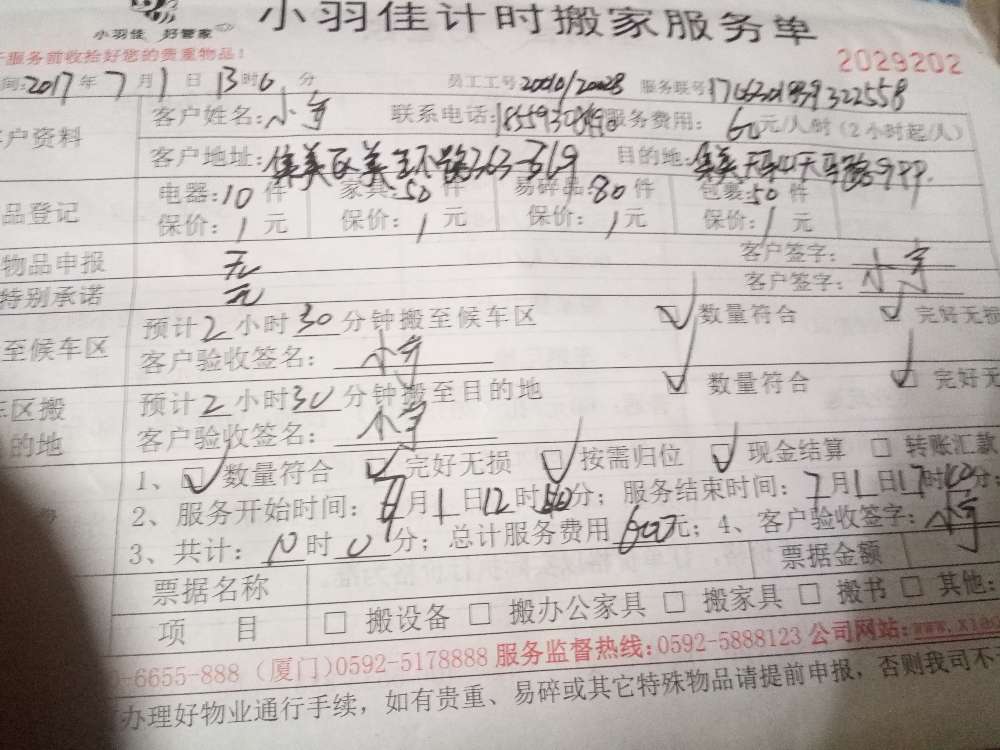 小羽佳计时搬家服务单
小羽佳 好管家
服务前收拾好您的贵重物品!
2029202
间:2017年7月1日13时6分 员工工号 服务联号
客户资料 客户姓名:小宇 联系电话: 服务费用:60元/人/时(2小时起/人)
客户地址:集美区 目的地:集美
品登记 电器:10件 家具:50件 易碎品:80件 包裹:50件
保价:1元 保价:1元 保价:1元 保价:1元
物品申报 无 客户签字:
特别承诺 无 客户签字:小宇
至候车区 预计2小时30分钟搬至候车区 数量符合 完好无损
客户验收签名:小宇
车区搬 预计2小时30分钟搬至目的地 数量符合 完好无
的地 客户验收签名:小宇
1、数量符合 完好无损 按需归位 现金结算 转账汇款
2、服务开始时间: 月1日12时 分;服务结束时间:7月1日17时 分;
3、共计:10时0分;总计服务费用600元;4、客户验收签字:小宇
票据名称 票据金额
项目 搬设备 搬办公家具 搬家具 搬书 其他:
-6655-888(厦门)0592-5178888 服务监督热线:0592-5888123 公司网站:www.xiao
办理好物业通行手续,如有贵重、易碎或其它特殊物品请提前申报,否则我司不